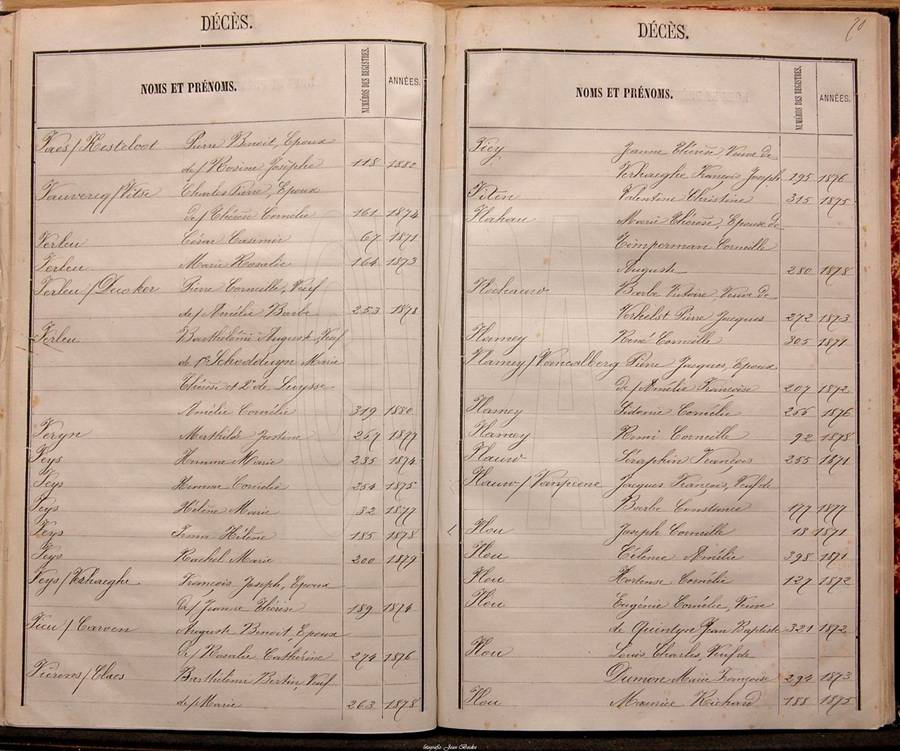 DÉCÈS.
NOMS ET PRÉNOMS. NUMÉROS DES REGISTRES. ANNÉES.
Faes / Kesteloot Pierre Benoit, Epoux
de / Rosine Josèphe 118 1882
Charles Pierre, Epoux
de / Thérèse Cornélie 161 1874
Ferleu César Casimir 67 1871
Ferleu Marie Rosalie 164 1873
Ferleu / Ducker Pierre Corneille, Veuf
de / Amélie Barbe 253 1878
Ferleu Barthélémi August, Veuf
de 1° Schoddeyn Marie
Thérèse et 2° de Luysse
Amélie Cornélie 319 1880
Feryn Mathilde Justine 267 1877
Feys Emma Marie 235 1874
Feys Emma Cornélie 254 1875
Feys Hélène Marie 32 1877
Feys Irma Hélène 185 1878
Feys Rachel Marie 200 1879
Feys / Vshaeghe François Joseph, Epoux
de / Jeanne Thérèse 189 1874
Fieu / Carven Auguste Benoit, Epoux
de / Rosalie Cathérine 274 1876
Fiérens / Claes Barthélémi Bertin, Veuf
de / Marie 263 1878
70
DÉCÈS.
NOMS ET PRÉNOMS. NUMÉROS DES REGISTRES. ANNÉES.
Jeanne Thérèse Veuve de
Verhaeghe François Joseph 295 1876
Valentine Christine 315 1875
Flahau Marie Thérèse, Epouse de
Timperman Corneille
Auguste 280 1878
Barbe Victoire, Veuve de
Verhelst Pierre Jacques 272 1873
Flamey René Corneille 305 1871
Flamey / Vancalberg Pierre Jacques, Epoux
de / Amélie Françoise 207 1872
Flamey Sidonie Cornélie 256 1876
Flamey Remi Corneille 92 1878
Flauw Séraphin François 255 1871
Flauw / Vanpiene Jacques François, Veuf de
Barbe Constance 177 1877
Flou Joseph Corneille 13 1871
Flou Célénie Amélie 398 1871
Flou Hortense Cornélie 127 1872
Flou Eugénie Cornélie, Veuve
de Quintyn Jean Baptiste 321 1872
Flou Louis Charles, Veuf de
Dumon Marie Françoise 294 1873
Flou Maurice Richard 188 1875